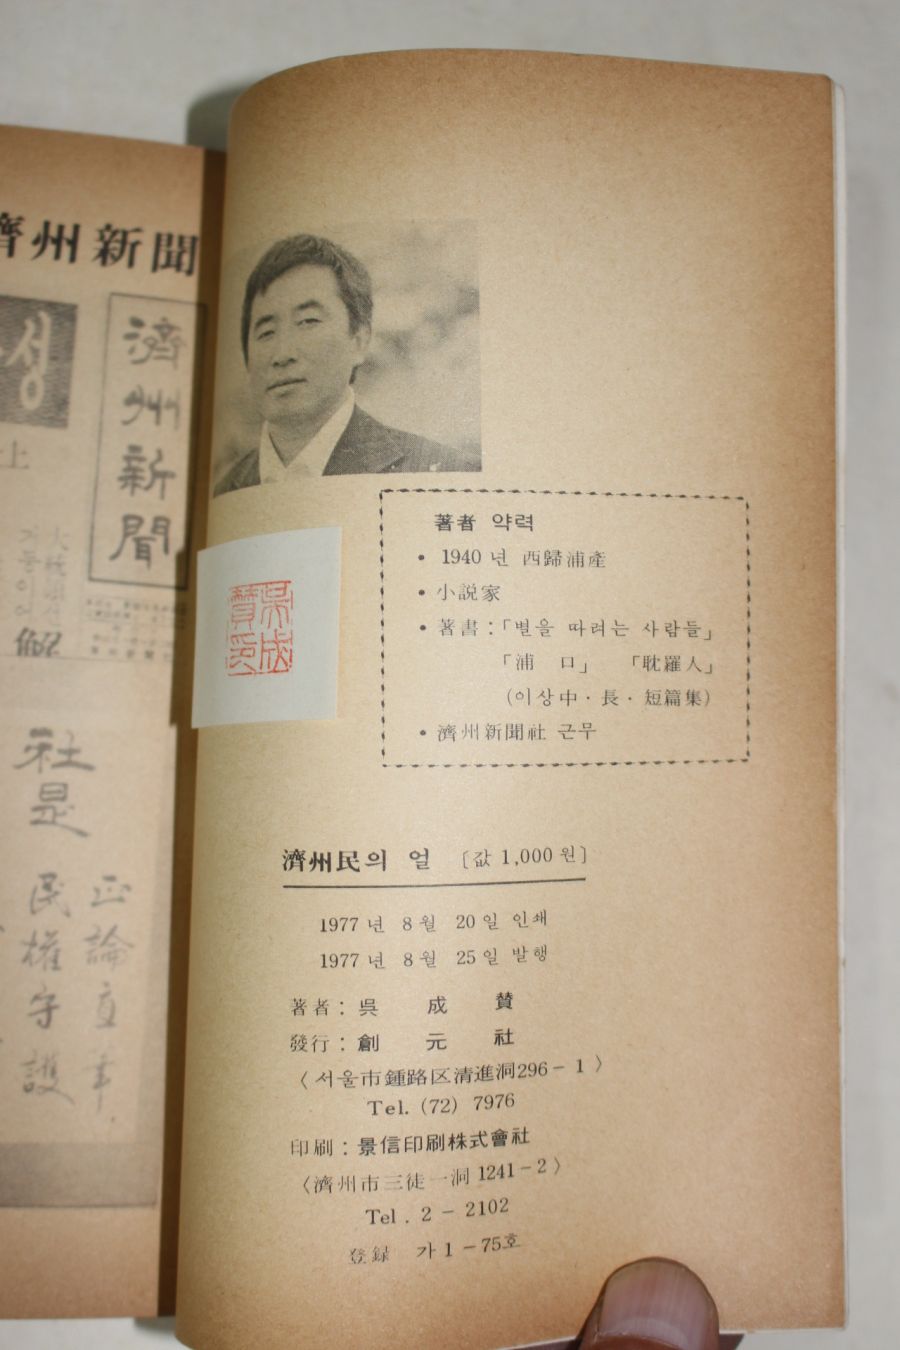 濟州新聞
성
上
濟州新聞
社是
正論直筆
民權守護
著者 약력
• 1940년 西歸浦產
• 小説家
• 著書:「별을 따려는 사람들」
「浦 口」 「耽羅人」
(이상中·長·短篇集)
• 濟州新聞社 근무
吳成贊印
濟州民의 얼 〔값 1,000원〕
1977년 8월 20일 인쇄
1977년 8월 25일 발행
著者: 吳 成 贊
發行: 創 元 社
〈서울市鍾路区清進洞296-1〉
Tel. (72) 7976
印刷: 景信印刷株式會社
〈濟州市三徒一洞 1241-2〉
Tel. 2-2102
登録 가1-75호